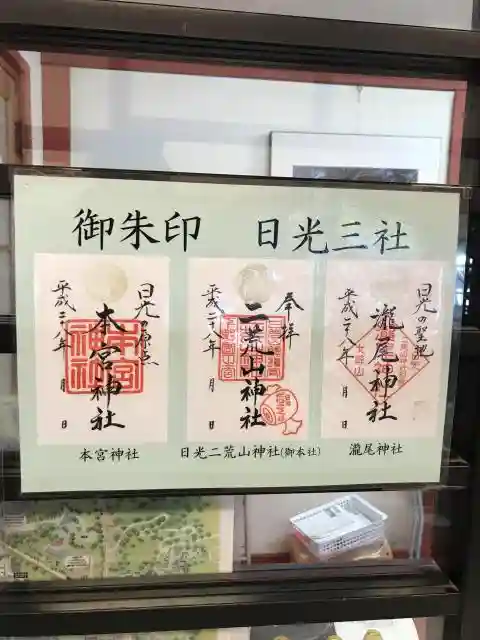 御朱印 日光三社
日光の原点
本宮神社
平成二八年 月 日
本宮神社
奉拝
二荒山神社
平成二十八年 月 日
日光二荒山神社(御本社)
日光の聖地
瀧尾神社
平成二十八年 月 日
瀧尾神社